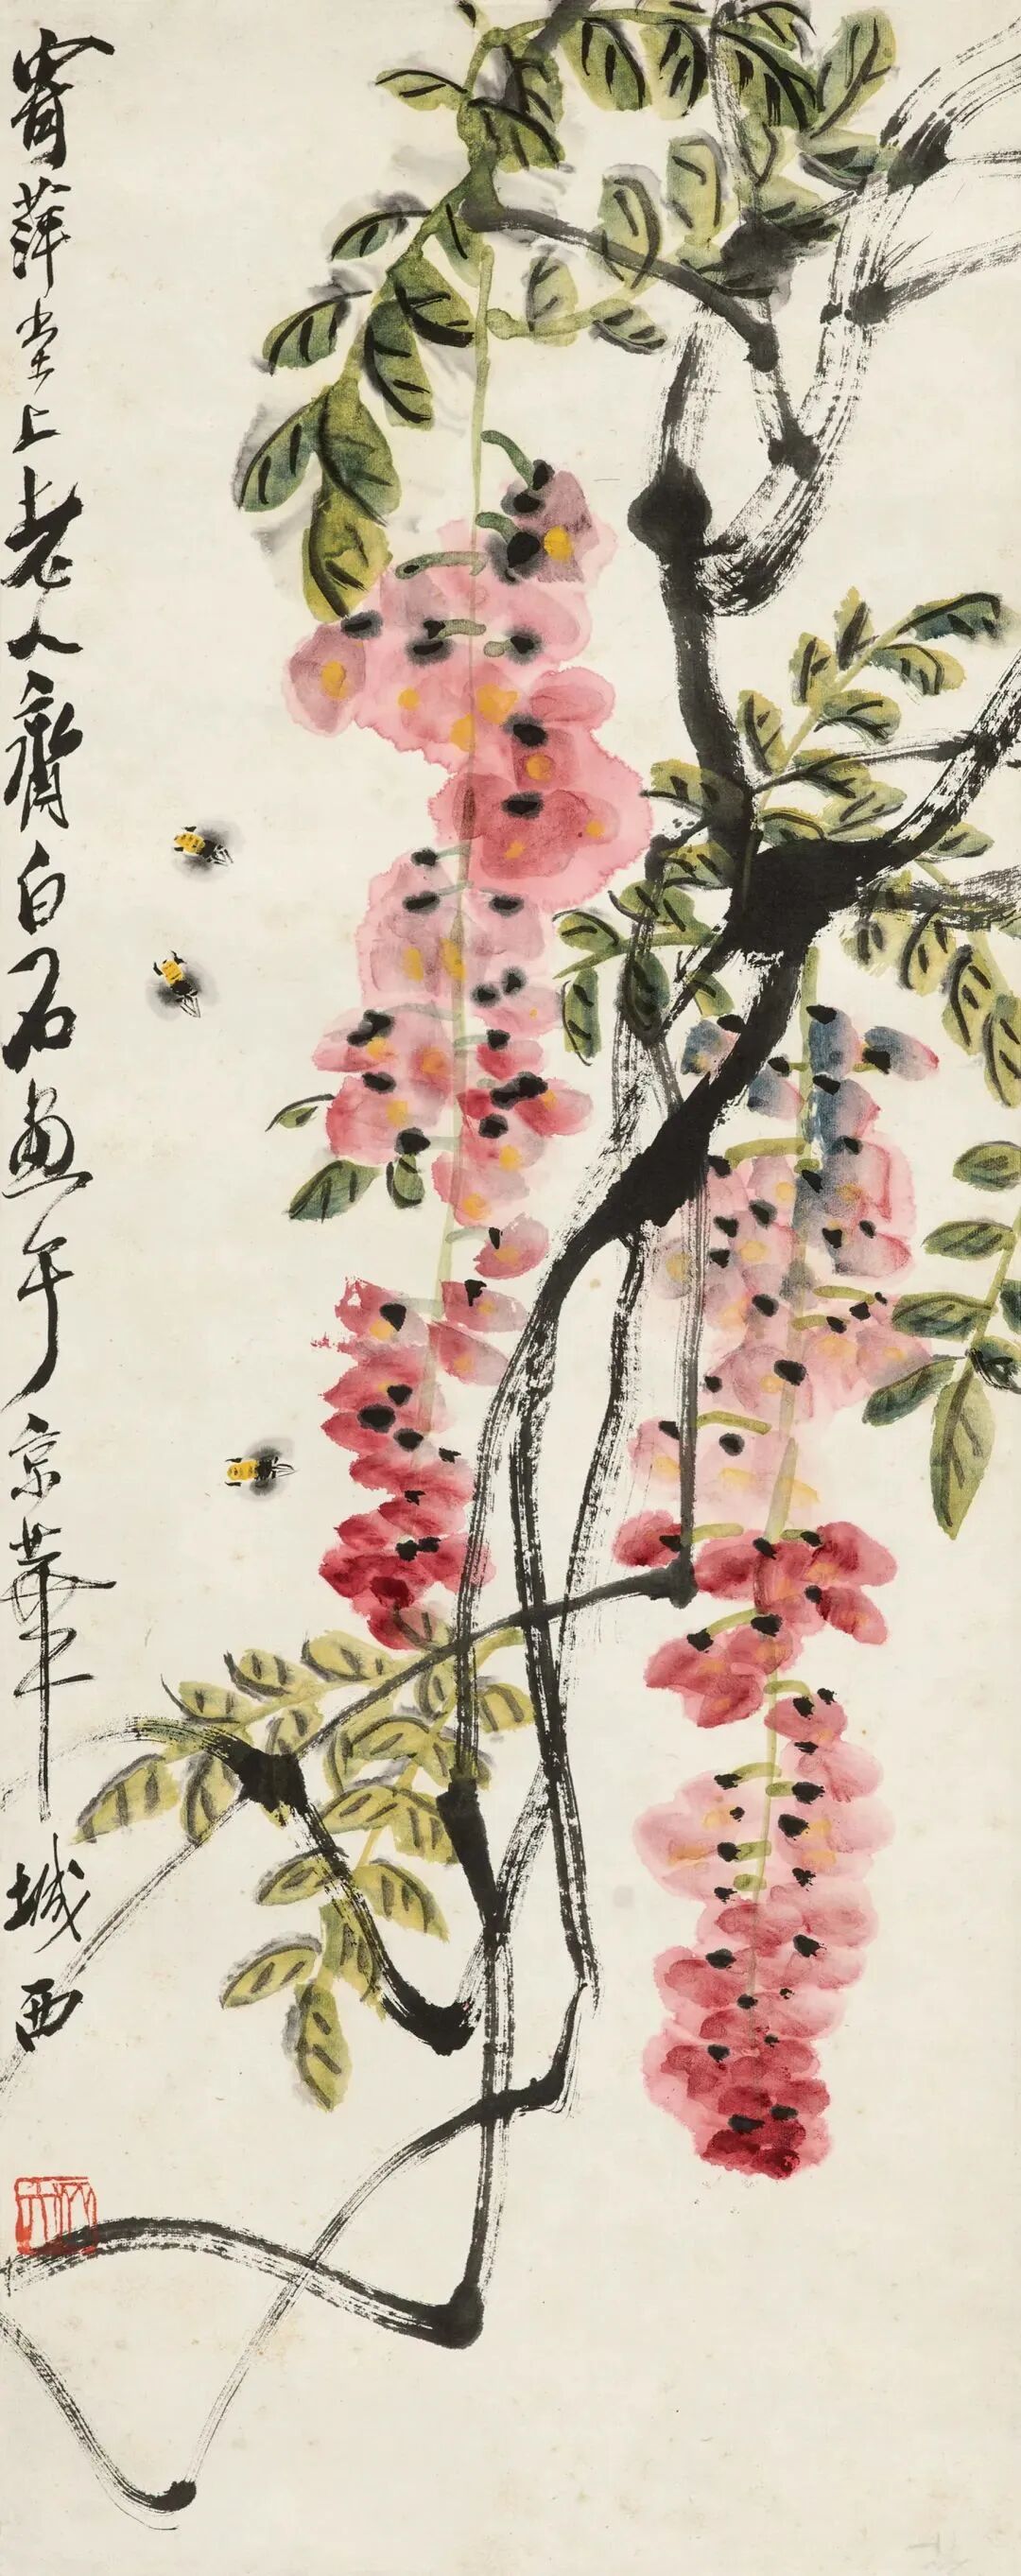 寄萍堂上老人齊白石畫于京華城西